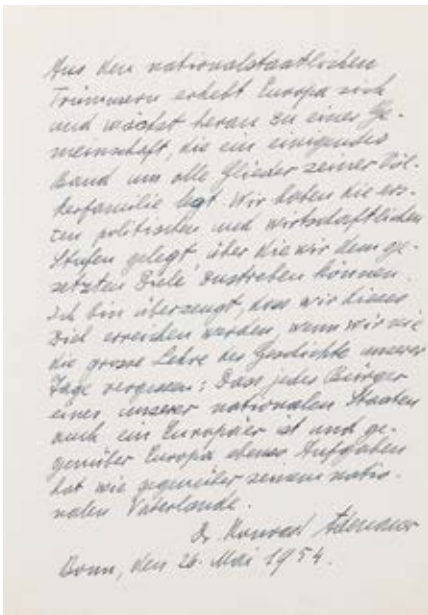 Aus den nationalstaatlichen
Trümmern erhebt Europa sich
und wächst heran zu einer Ge-
meinschaft, die ein einigendes
Band um alle Glieder seiner Völ-
kerfamilie legt. Wir haben die ers-
ten politischen und wirtschaftlichen
Stufen gelegt, über die wir dem ge-
setzten Ziele zustreben können.
Ich bin überzeugt, dass wir dieses
Ziel erreichen werden, wenn wir nie
die grosse Lehre der Geschichte unserer
Tage vergessen: Dass jeder Bürger
eines unserer nationalen Staaten
auch ein Europäer ist und ge-
genüber Europa ebenso Aufgaben
hat wie gegenüber seinem natio-
nalen Vaterlande.
Dr Konrad Adenauer
Bonn, den 26. Mai 1954.